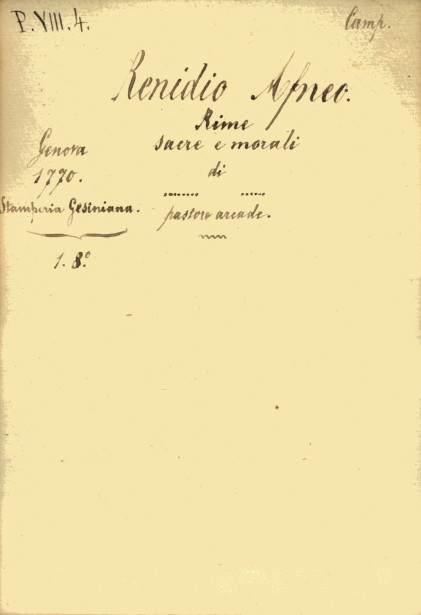 P.VIII.4.
Camp.
Renidio Afneo.
Rime
sacre e morali
di
...... .....
pastore arcade.
Genova
1770.
Stamperia Gesiniana.
1. 8º